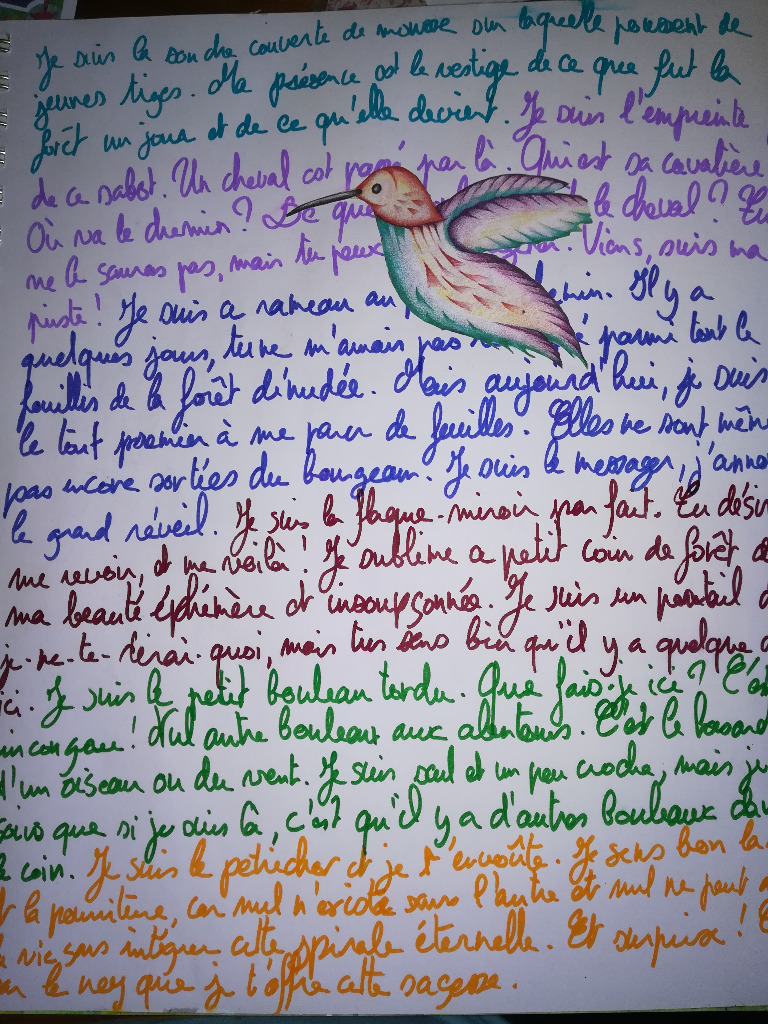 Je suis la souche couverte de mousse sur laquelle poussent de
jeunes tiges. Ma présence est le vestige de ce que fut la
forêt un jour et de ce qu'elle devient. Je suis l'empreinte
de ce sabot. Un cheval est passé par là. Qui est sa cavalière
Où va le chemin? De que le cheval? Tu
ne le sauras pas, mais tu peux . Viens, suis ma
piste! Je suis ce rameau au chemin. Il y a
quelques jours, tu ne m'aurais pas parmi tout le
fouillis de la forêt dénudée. Mais aujourd'hui, je suis
le tout premier à me parer de feuilles. Elles ne sont même
pas encore sorties du bourgeon. Je suis le messager, j'anno
le grand réveil. Je suis la flaque-miroir parfait. Tu désir
me revoir, et me voilà! Je sublime ce petit coin de forêt de
ma beauté éphémère et insoupsonnée. Je suis un portail d
je-ne-te-dirai-quoi, mais tu sens bien qu'il y a quelque c
ici. Je suis le petit bouleau tordu. Que fais-je ici? C'est
incongru! Nul autre bouleau aux alentours. C'est le hasard
d'un oiseau ou du vent. Je suis seul et un peu croche, mais je
sais que si je suis là, c'est qu'il y a d'autres bouleaux dans
le coin. Je suis le pétrichor et je t'envoûte. Je sens bon la
t la pourriture, car nul n'existe sans l'autre et nul ne peut
a vie, sans intégrer cette spirale éternelle. Et surprise! C
le nez que je t'offre cette sagesse.